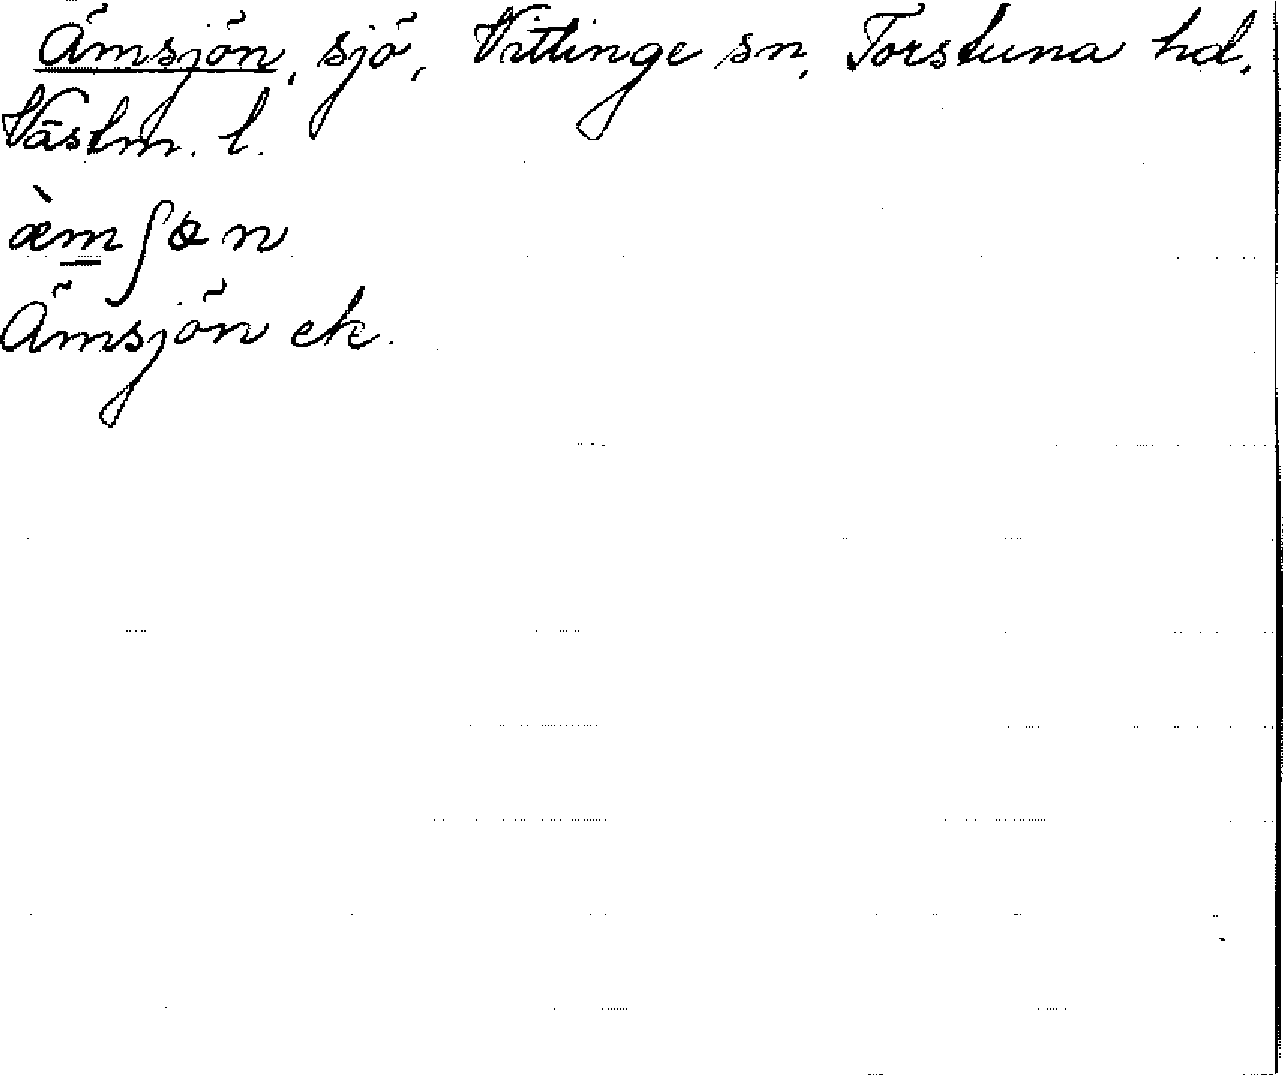 Ämsjön, sjö, Vittinge sn, Torstuna hd,
Västm. l.
æ̀mʃɵn
Ämsjön ek.